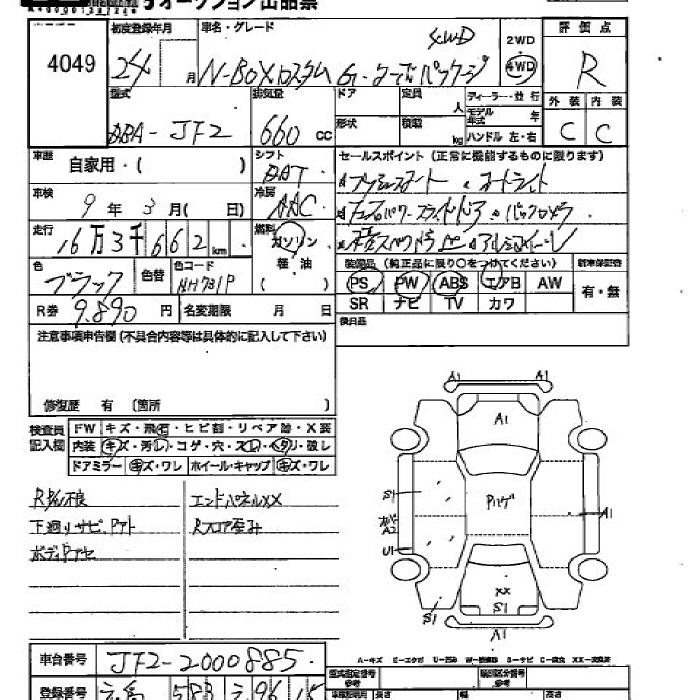 オークション出品票
4049
初度登録年月
24 月
車名・グレード
N-BOXカスタム G・ターボパッケージ 4WD
2WD
4WD
評価点
R
型式
DBA- JF2
排気量
660 cc
ドア
定員 人
形状
積載 kg
ディーラー・並行
モデル年式 年
ハンドル 左・右
外装 内装
C C
車歴 自家用・( )
シフト
DAT
セールスポイント (正常に機能するものに限ります)
プッシュスタート オートライト
車検 9年3月( 日)
冷房
AAC
両側パワースライドドア バックカメラ
走行 16万3千662km
燃料 ガソリン
軽油
( )
色 ブラック
色替
色コード NH731P
装備品 (純正品に限り○をつけてください)
新車保証書
PS PW ABS エアB AW
SR ナビ TV カワ
有・無
R券 9.890円
名変期限 月 日
後日品
注意事項申告欄 (不具合内容等は具体的に記入して下さい)
修復歴 有 (箇所
検査員記入欄
FW キズ・飛石・ヒビ割・リペア跡・X要
内装 キズ・汚レ・コゲ・穴・スレ・ヘタリ・破レ
ドアミラー キズ・ワレ ホイール・キャップ キズ・ワレ
下廻りサビ、
エンドパネルXX
Rフロア歪み
A1 A1
A1
S1
Pハゲ
A1
A2
U1
XX
S1
S1
A1
車台番号 JF2-2000885
登録番号 583
A-キズ E-エクボ U-凹み W-補修跡 S-サビ C-腐食 XX-交換済
型式指定番号
参考
類別区分番号
参考
長さ 幅 高さ